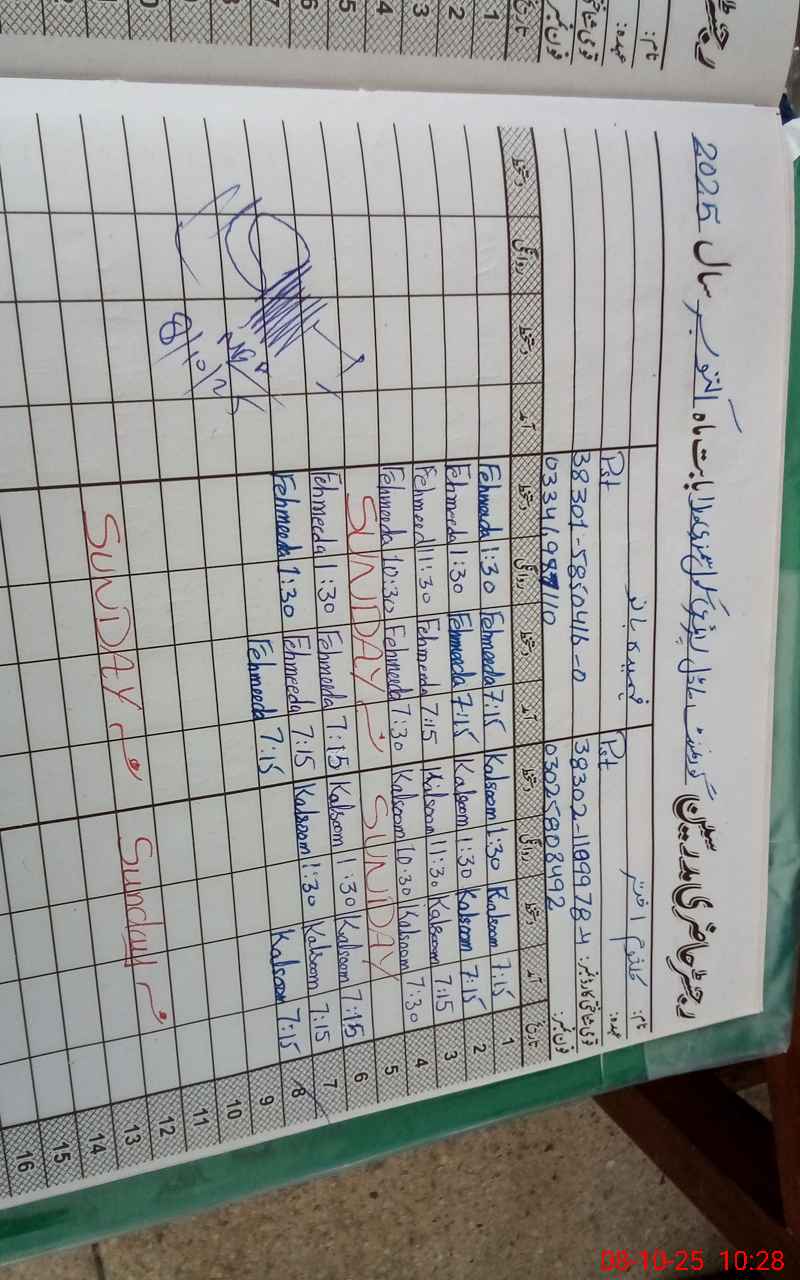 رجسٹر حاضری مدرسین گورنمنٹ ماڈل پرائمری سکول بابت ماہ اکتوبر سال 2025
نام: کلثوم اختر فہمیدہ بانو
عہدہ: Pst Pst
قومی شناختی کارڈ نمبر: 38302-1199978-4 38301-5850416-0
فون نمبر: 03025808492 033416987110
تاریخ آمد دستخط روانگی دستخط آمد دستخط روانگی دستخط آمد دستخط روانگی دستخط
Fehmeeda 1:30 Fehmeeda 7:15 Kalsoom 1:30 Kalsoom 7:15 1
Fehmeeda 1:30 Fehmeeda 7:15 Kalsoom 1:30 Kalsoom 7:15 2
Fehmeed 11:30 Fehmeeda 7:15 Kalsoom 11:30 Kalsoom 7:15 3
Fehmeeda 10:30 Fehmeeda 7:30 Kalsoom 10:30 Kalsoom 7:30 4
SUNDAY SUNDAY 5
Fehmeeda 1:30 Fehmeeda 7:15 Kalsoom 1:30 Kalsoom 7:15 6
Fehmeeda 1:30 Fehmeeda 7:15 Kalsoom 1:30 Kalsoom 7:15 7
Fehmeeda 7:15 Kalsoom 7:15 8
8/10/25
9
10
11
SUNDAY Sunday 12
13
14
15
16
نام:
عہدہ:
فون نمبر:
تاریخ
1
2
3
4
5
6
7
08-10-25 10:28